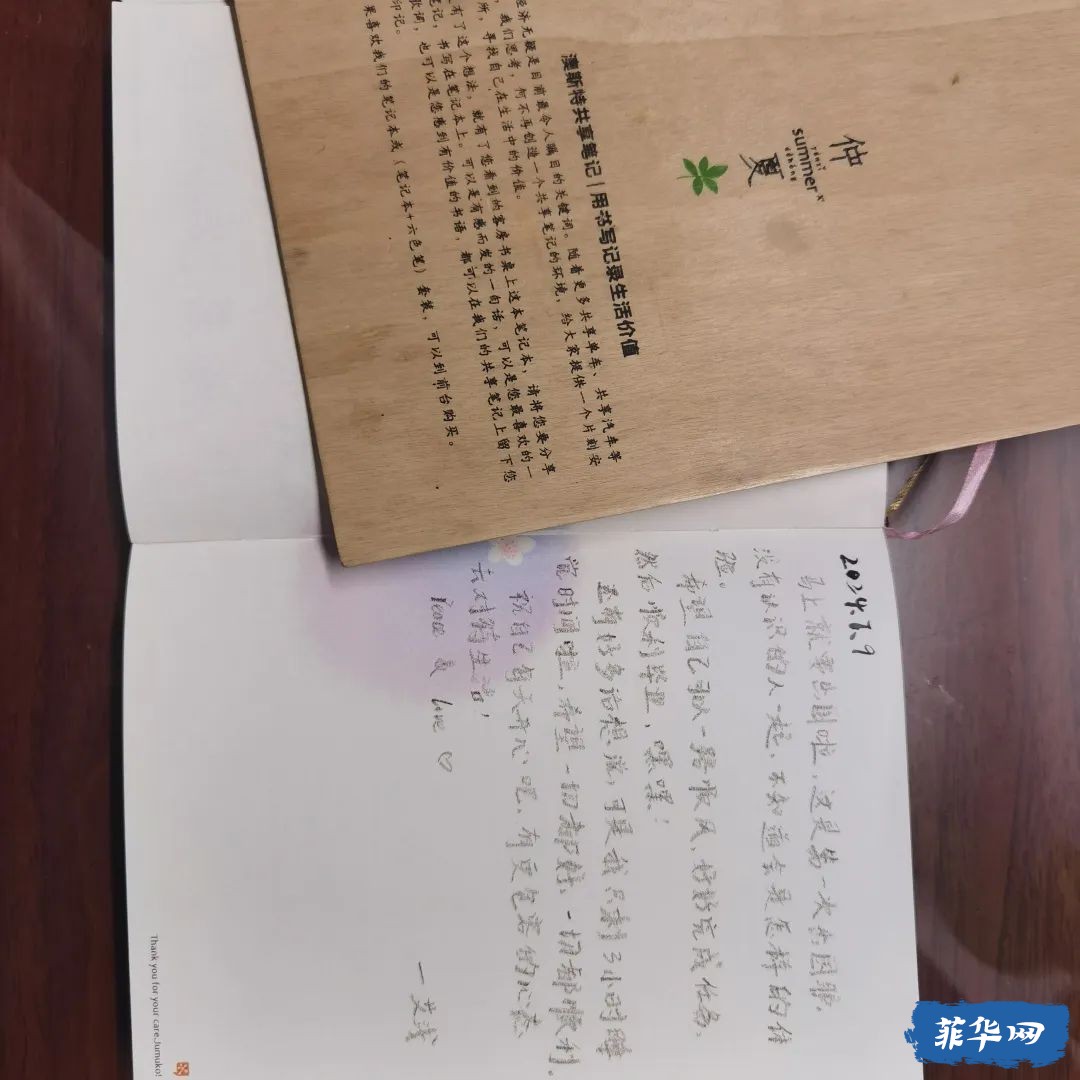 仲夏
summer
澳斯特共享笔记|用书写记录生活价值
经济无疑是目前最令人瞩目的关键词。随着更多共享单车、共享汽车等
,我们思考,何不再创造一个共享笔记的环境,给大家提供一个片刻安
所,寻找自己在生活中的价值。
有了这个想法,就有了您看到的客房书桌上这本笔记本,请将您要分享
笔记,书写在笔记本上。可以是有感而发的一句话,可以是您最喜欢的一
歌词,也可以是您感到有价值的书语,都可以在我们的共享笔记上留下您
印记。
果喜欢我们的笔记本或(笔记本+六色笔)套装,可以到前台购买。
2024.1.9
马上就要出国啦,这是第一次出国
没有认识的人一起、不知道会是怎样的体
验。
希望自己可以一路顺风,好好完成任务,
然后顺利毕业,嘿嘿!
还有好多话想说,可是我只剩3小时睡
觉时间啦,希望一切都好、一切都顺利。
祝自己每天开心吧、有更包容的心态
去对待生活!
Peace & Love ♡
Thank you for your care.Jumuko!
菲华网